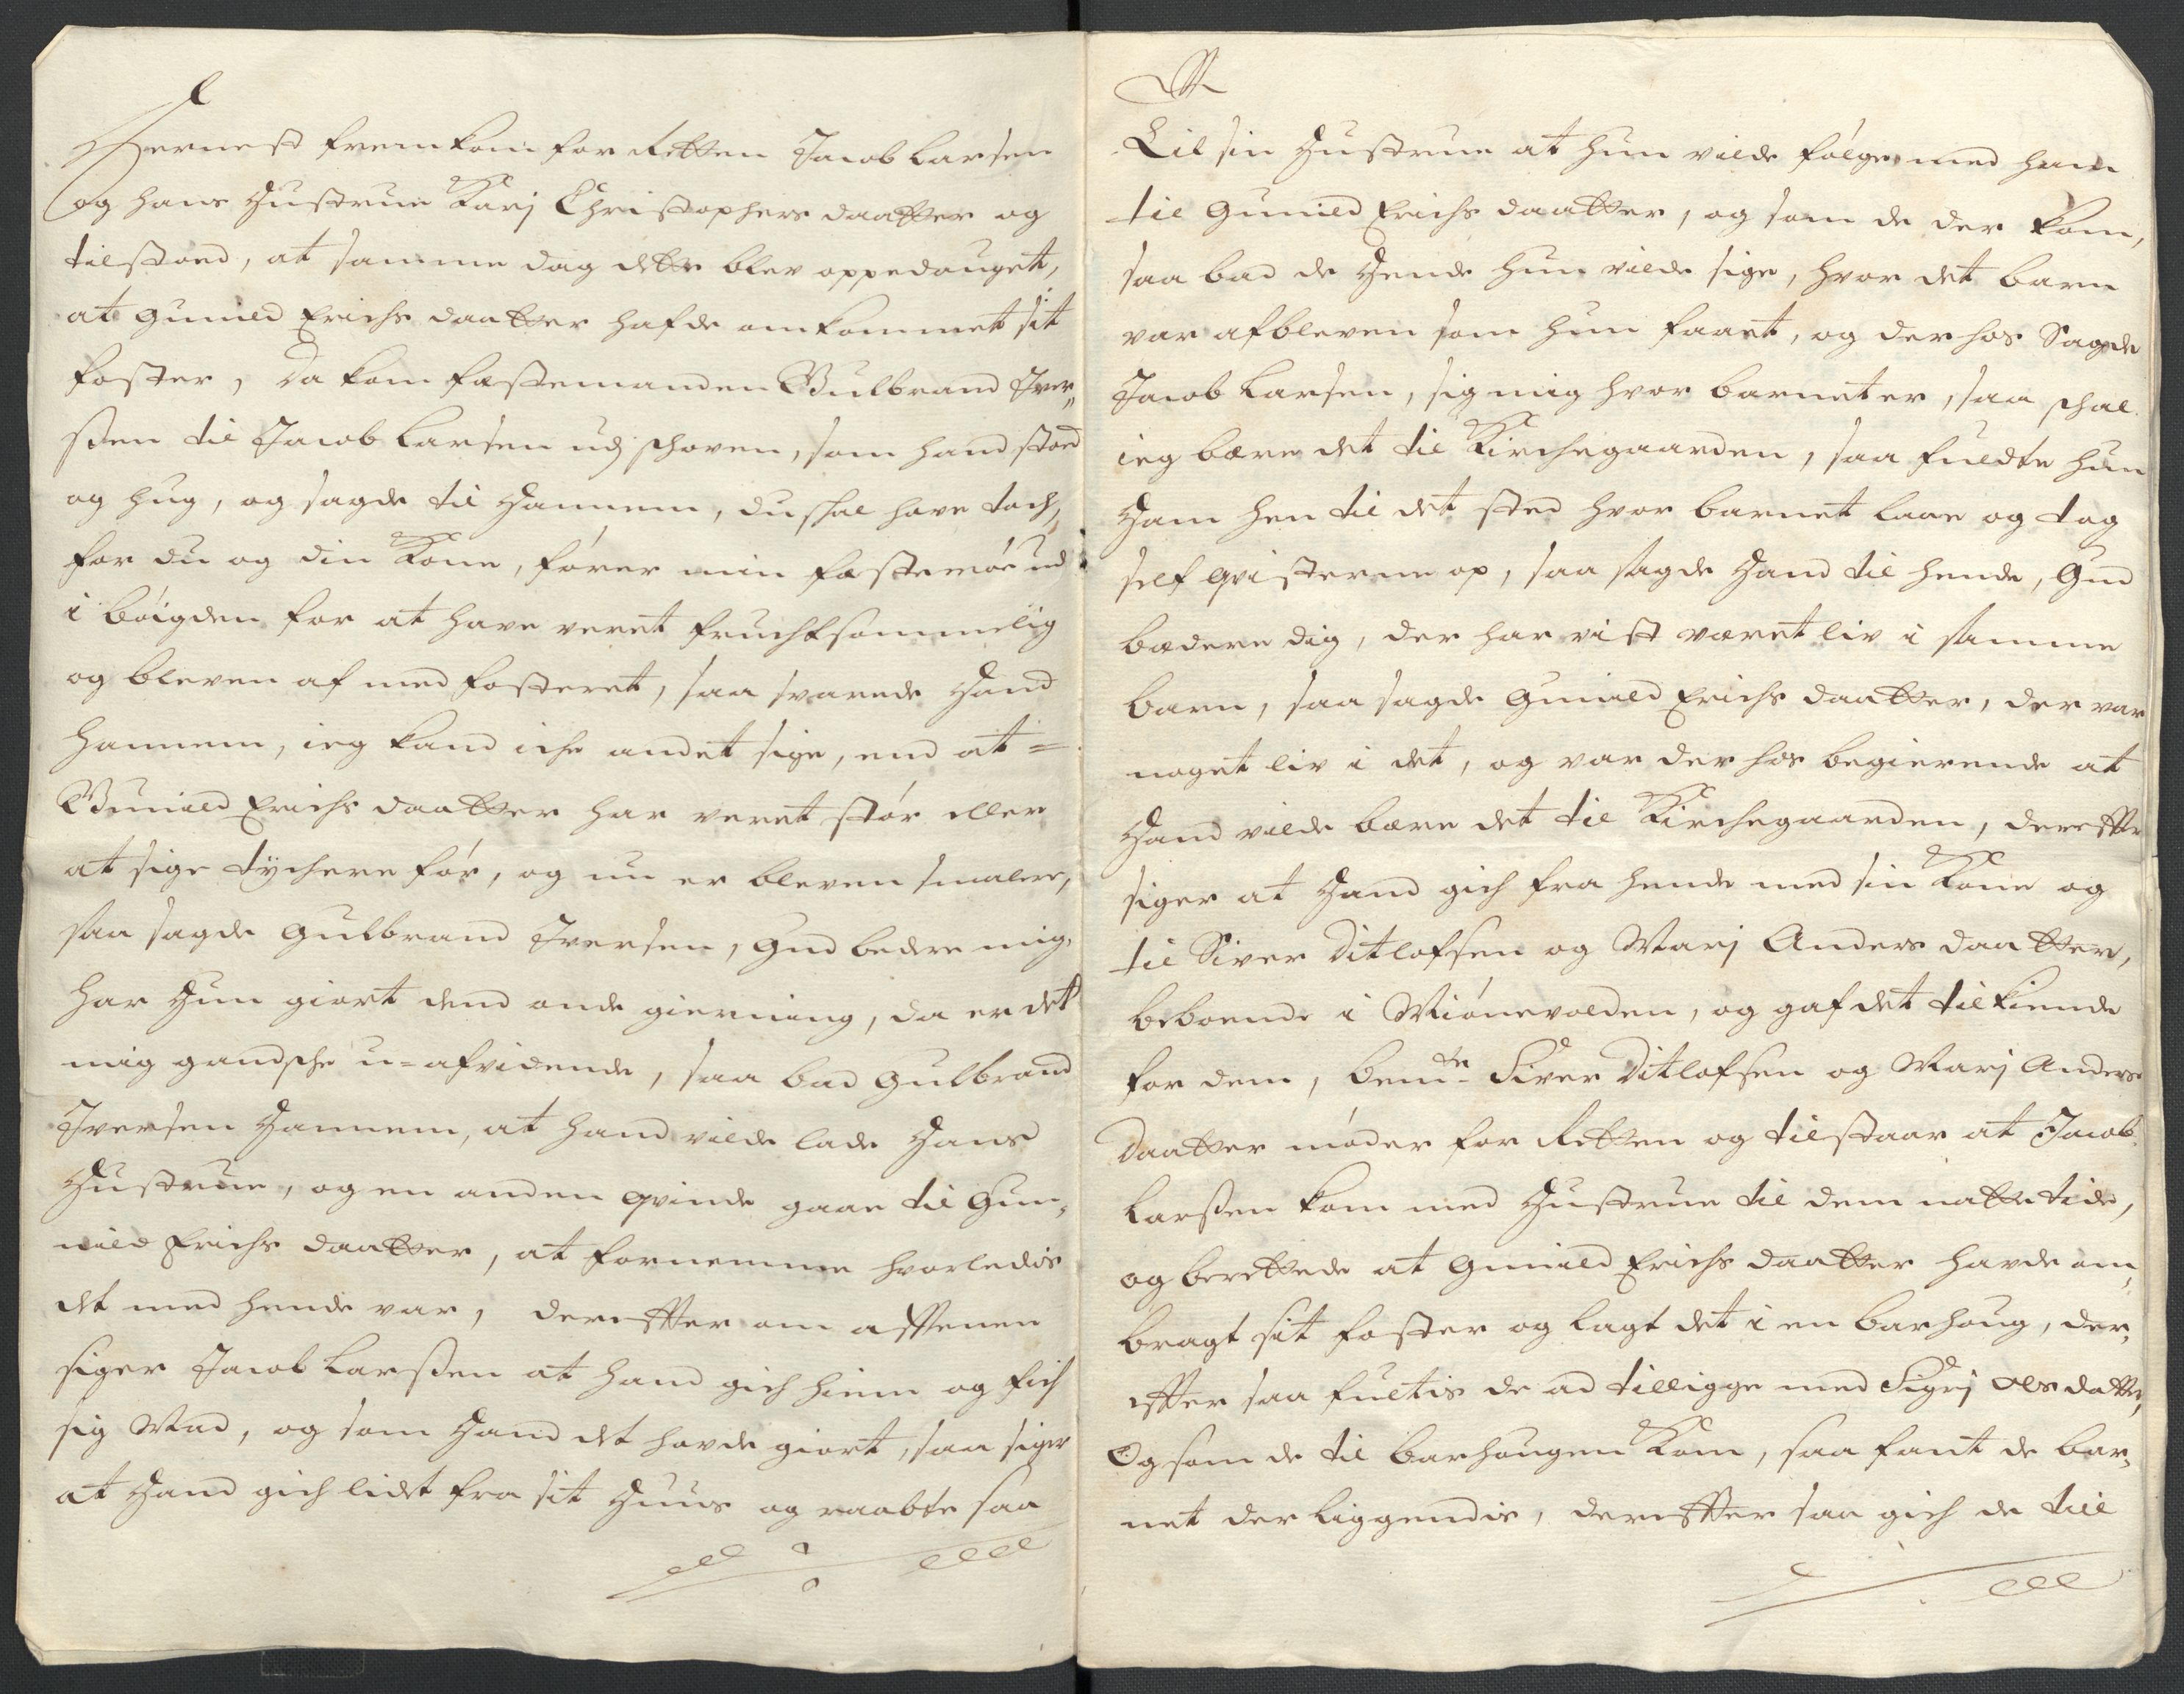 Hernest fremkom for Retten Jacob Larsen
og hans Hustrue Karj Christophers daatter og
tilstoed, at samme dag dette blev oppedauget,
at Gunild Erichs daatter hafde omkommet sit
foster, da kom fæstemanden Gulbrand Iver„
ßen til Jacob Larsen udj schoven, som hand stoed
og hug, og sagde til Hannem, du schal have tach,
for du og din Kone, fører min fæstemöe ud
i böigden for at have veret fruchtsommelig
og bleven af med fosteret, saa svarede Hand
hannem, ieg kand iche andet sige, end at =
Gunild Erichs daatter har veret stór eller
at sige tÿchere før, og nu er bleven smalere,
saa sagde Gulbrand Iversen, Gud bedre mig,
har Hun giort dend onde gierning, da er det
mig gandsche u=afvidende, saa bad Gulbrand
Iversen Hannem, at hand vilde lade Hans
Hustrue, og en anden qvinde gaae til Gun„
nild Erichs daatter, at fornemme hvorledis
det med hende var, derefter om afftenen
siger Jacob Larßen at hand gich hiem og fich
sig Mad, og som Hand det havde giort, saa siger
at Hand gich lidet fra sit Huus og raabte saa
Til sin Hustrue at hun vilde følge med ham
til Gunild Erichs daatter, og som de der kom,
saa bad de Hende hun vilde sige, hvor det barn
var afbleven som hun faaet, og derhos Sagde
Jacob Larsen, sig mig hvor barnet er, saa schal
ieg bære det til Kirchegaarden, saa fuldte hun
Ham hen til det sted hvor barnet laae og tog
self qvisterne op, saa sagde Hand til hende, Gud
bædere dig, der har vist været liv i samme
barn, saa sagde Gunild Erichs daatter, der var
noget liv i det, og var der hos begierende at
Hand vilde bære det til Kirchegaarden, derefter
siger at Hand gich fra hende med sin Kone og
til Siver Ditlofsen og Marj Anders daatter,
beboende i Miónevolden, og gaf det tilkiende
for dem, bemte Siver Ditlofsen og Marj Anders
Daatter móder for Retten og tilstaar at Jacob
Larßen kom med Hustrue til dem nattetide,
og berettede at Gunild Erichs daatter havde om„
bragt sit foster og lagt det i en barhoug, der„
efter saa fultis de ad tilligge med Sigrj Ols datter,
Og som de til barhougen Kom, saa fant de bar„
net der liggendis, derefter saa gich de till